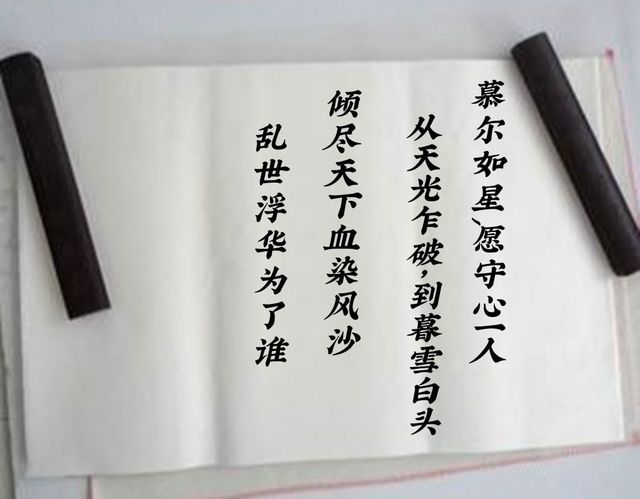 慕尔如星、愿守心一人
从天光乍破，到暮雪白头
倾尽天下血染风沙
乱世浮华为了谁